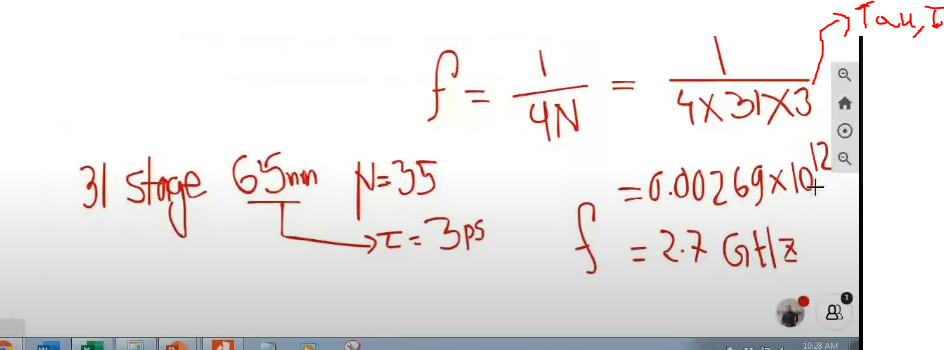 Tau, τ
f = 1/4N = 1/4×31×3
31 stage 65nm N=35
τ = 3ps
= 0.00269×10^12
f = 2.7 GHz
1
10:28 AM